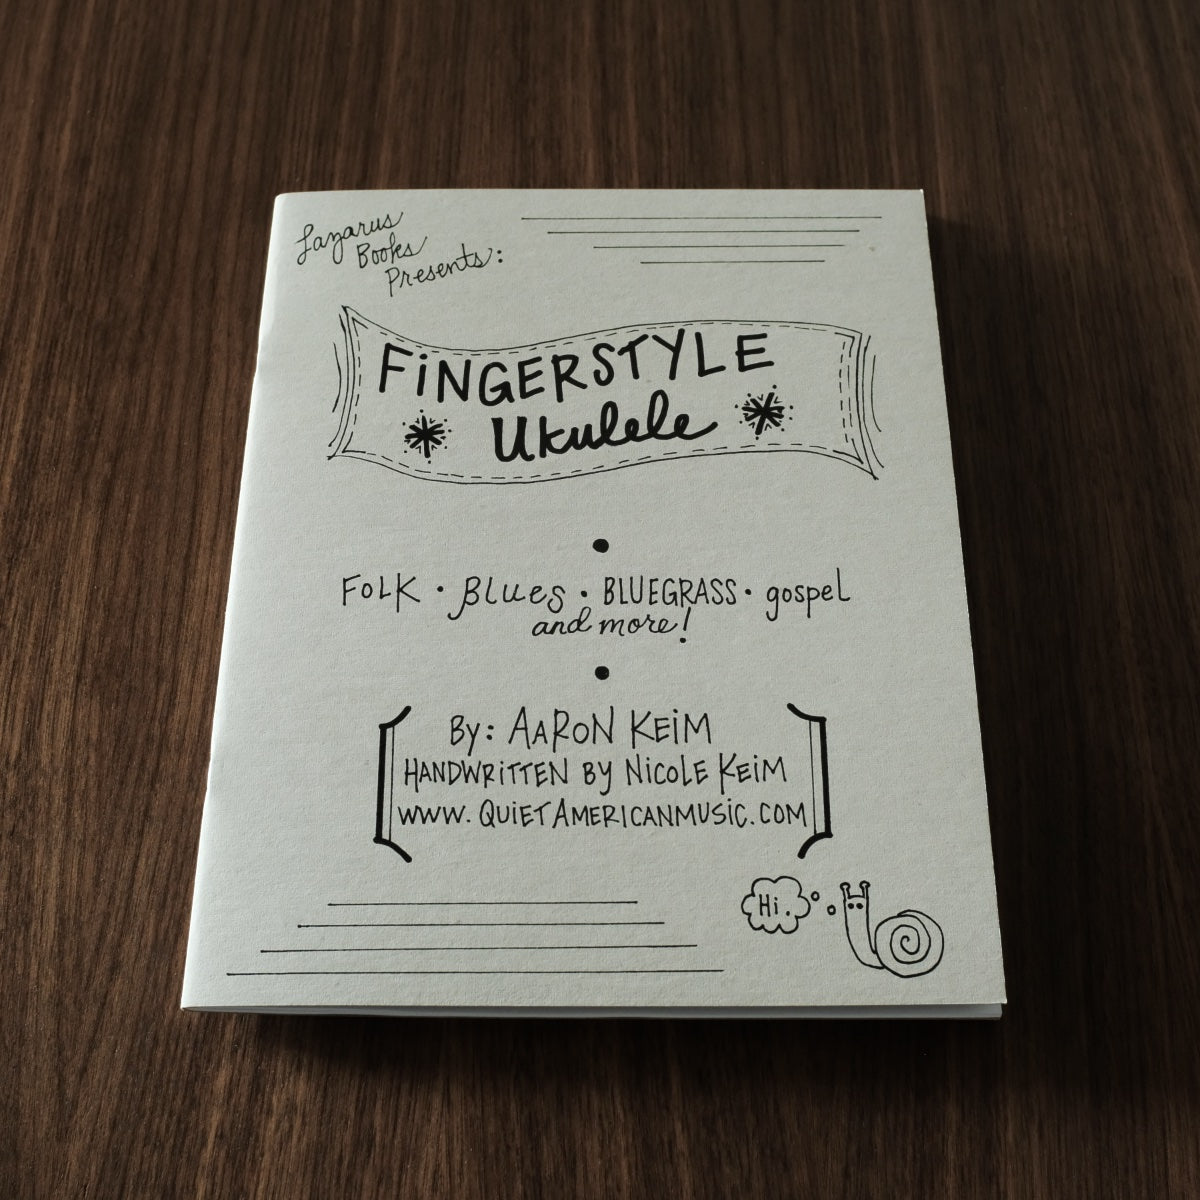 Lazarus
Books
Presents:
FiNGERSTYLE
Ukulele
FOLK · Blues · BLUEGRASS · gospel
and more!
By: AARON KEiM
HANDWRiTTEN By NiCOLE KEiM
WWW. QUIETAMERICANMUSIC.COM
Hi.